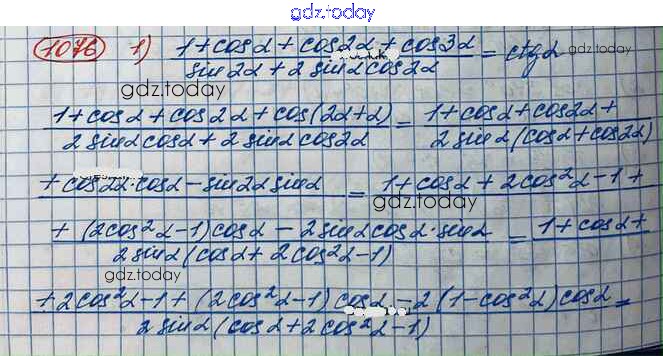 gdz.today
1076 1) (1+cosα+cos2α+cos3α)/(sin2α+2sinαcos2α) = ctgα gdz.today
gdz.today
(1+cosα+cos2α+cos(2α+α))/(2sinαcosα+2sinαcos2α) = (1+cosα+cos2α+)/(2sinα(cosα+cos2α))
(+cos2α·cosα-sin2αsinα)/ = (1+cosα+2cos²α-1+)/
gdz.today
(+(2cos²α-1)cosα-2sinαcosα·sinα)/(2sinα(cosα+2cos²α-1)) = (1+cosα+)/
gdz.today
(+2cos²α-1+(2cos²α-1)cosα-2(1-cos²α)cosα)/(2sinα(cosα+2cos²α-1)) =